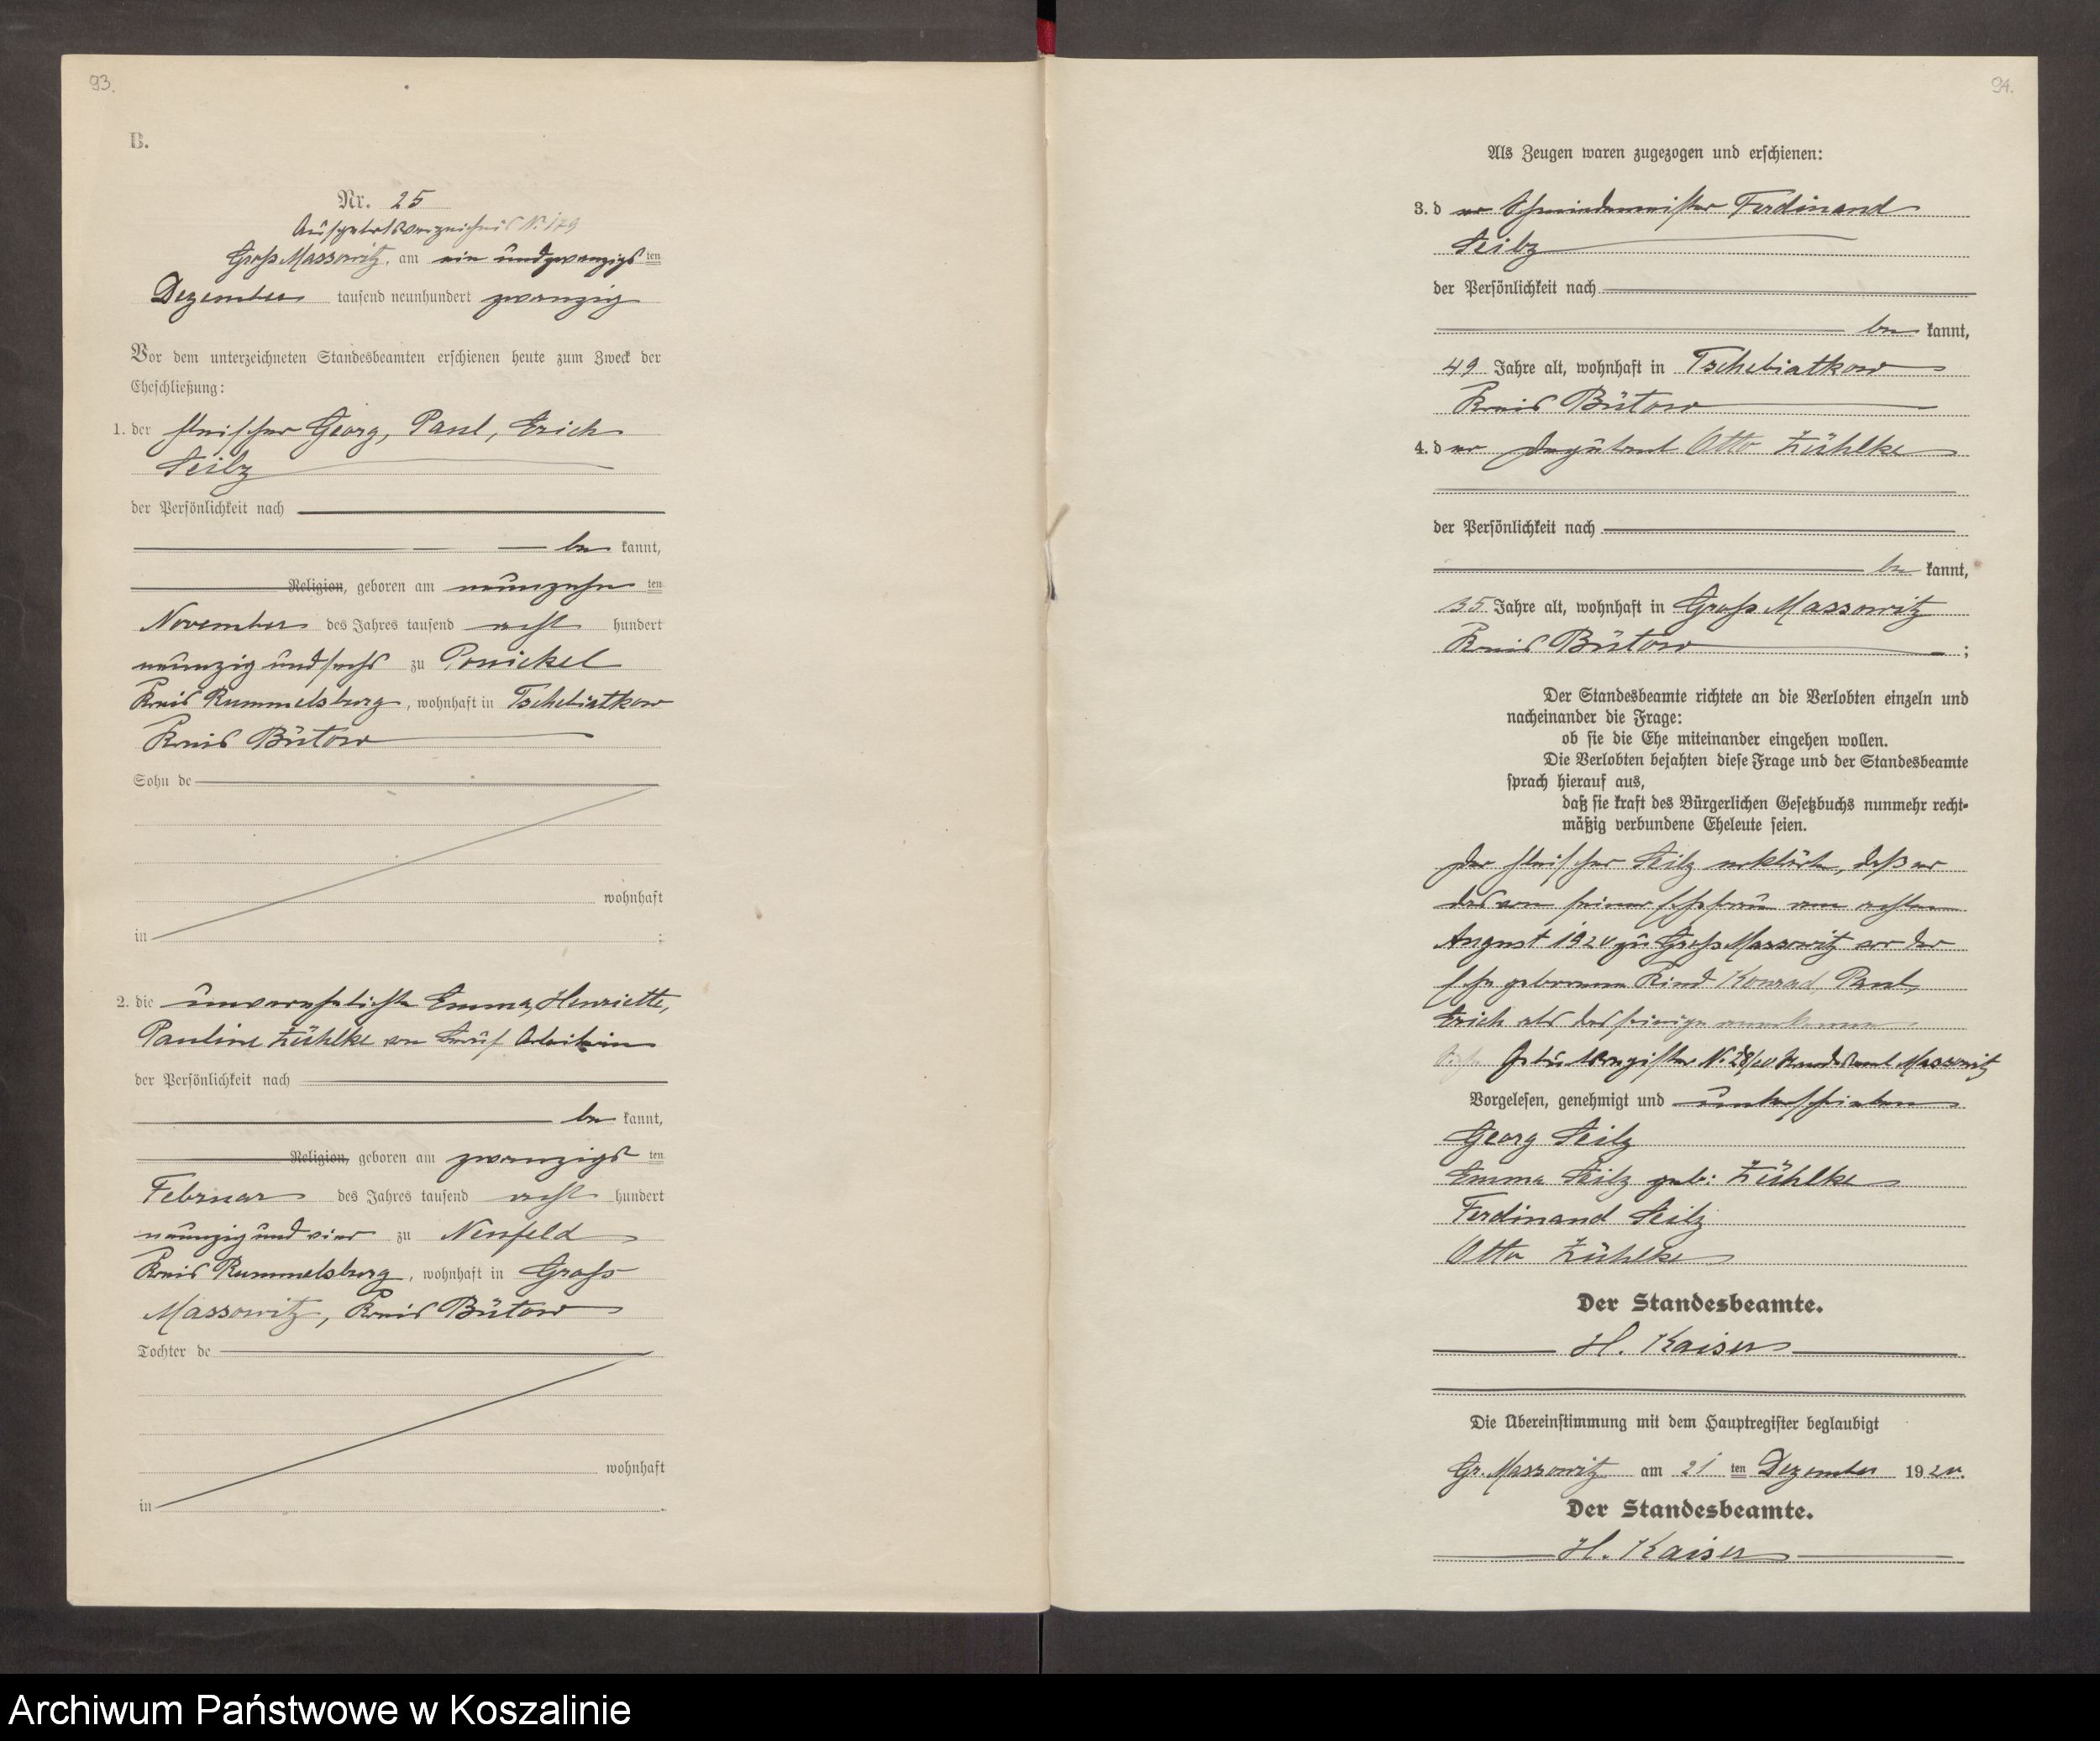 93.
B.
Nr. 25
Aufgebotsverzeichnis N. 179
Groß Massowitz, am ein und zwanzigsten
Dezember tausend neunhundert zwanzig
Vor dem unterzeichneten Standesbeamten erschienen heute zum Zweck der
Eheschließung:
1. der Fleischer Georg, Paul, Erich
Seilz
der Persönlichkeit nach
be kannt,
Religion, geboren am neunzehn ten
November des Jahres tausend acht hundert
neunzig und sechs zu Ponickel
Kreis Rummelsburg, wohnhaft in Tschebiatkow
Kreis Bütow
Sohn de
wohnhaft
in ;
2. die unverehelichte Emma, Henriette,
Pauline Zühlke von Beruf Arbeiterin
der Persönlichkeit nach
be kannt,
Religion, geboren am zwanzigsten
Februar des Jahres tausend acht hundert
neunzig und vier zu Neufeld
Kreis Rummelsburg, wohnhaft in Groß
Massowitz, Kreis Bütow
Tochter de
wohnhaft
in .
94.
Als Zeugen waren zugezogen und erschienen:
3. der Schmiedemeister Ferdinand
Seilz
der Persönlichkeit nach
be kannt,
49 Jahre alt, wohnhaft in Tschebiatkow
Kreis Bütow
4. der Deputant Otto Zühlke
der Persönlichkeit nach
be kannt,
35 Jahre alt, wohnhaft in Groß Massowitz
Kreis Bütow ;
Der Standesbeamte richtete an die Verlobten einzeln und
nacheinander die Frage:
ob sie die Ehe miteinander eingehen wollen.
Die Verlobten bejahten diese Frage und der Standesbeamte
sprach hierauf aus,
daß sie kraft des Bürgerlichen Gesetzbuchs nunmehr recht-
mäßig verbundene Eheleute seien.
Der Fleischer Seilz erklärte, daß er
das von seiner Ehefrau am achten
August 1920 zu Groß Massowitz vor der
Ehe geborene Kind Konrad, Paul,
Erich als das seinige anerkenne.
Geburtsregister N. 28/20 Standesamt Massowitz
Vorgelesen, genehmigt und unterschrieben
Georg Seilz
Emma Seilz geb: Zühlke
Ferdinand Seilz
Otto Zühlke
Der Standesbeamte.
H. Kaiser
Die Übereinstimmung mit dem Hauptregister beglaubigt
Gr. Massowitz am 21 ten Dezember 1920.
Der Standesbeamte.
H. Kaiser
Archiwum Państwowe w Koszalinie